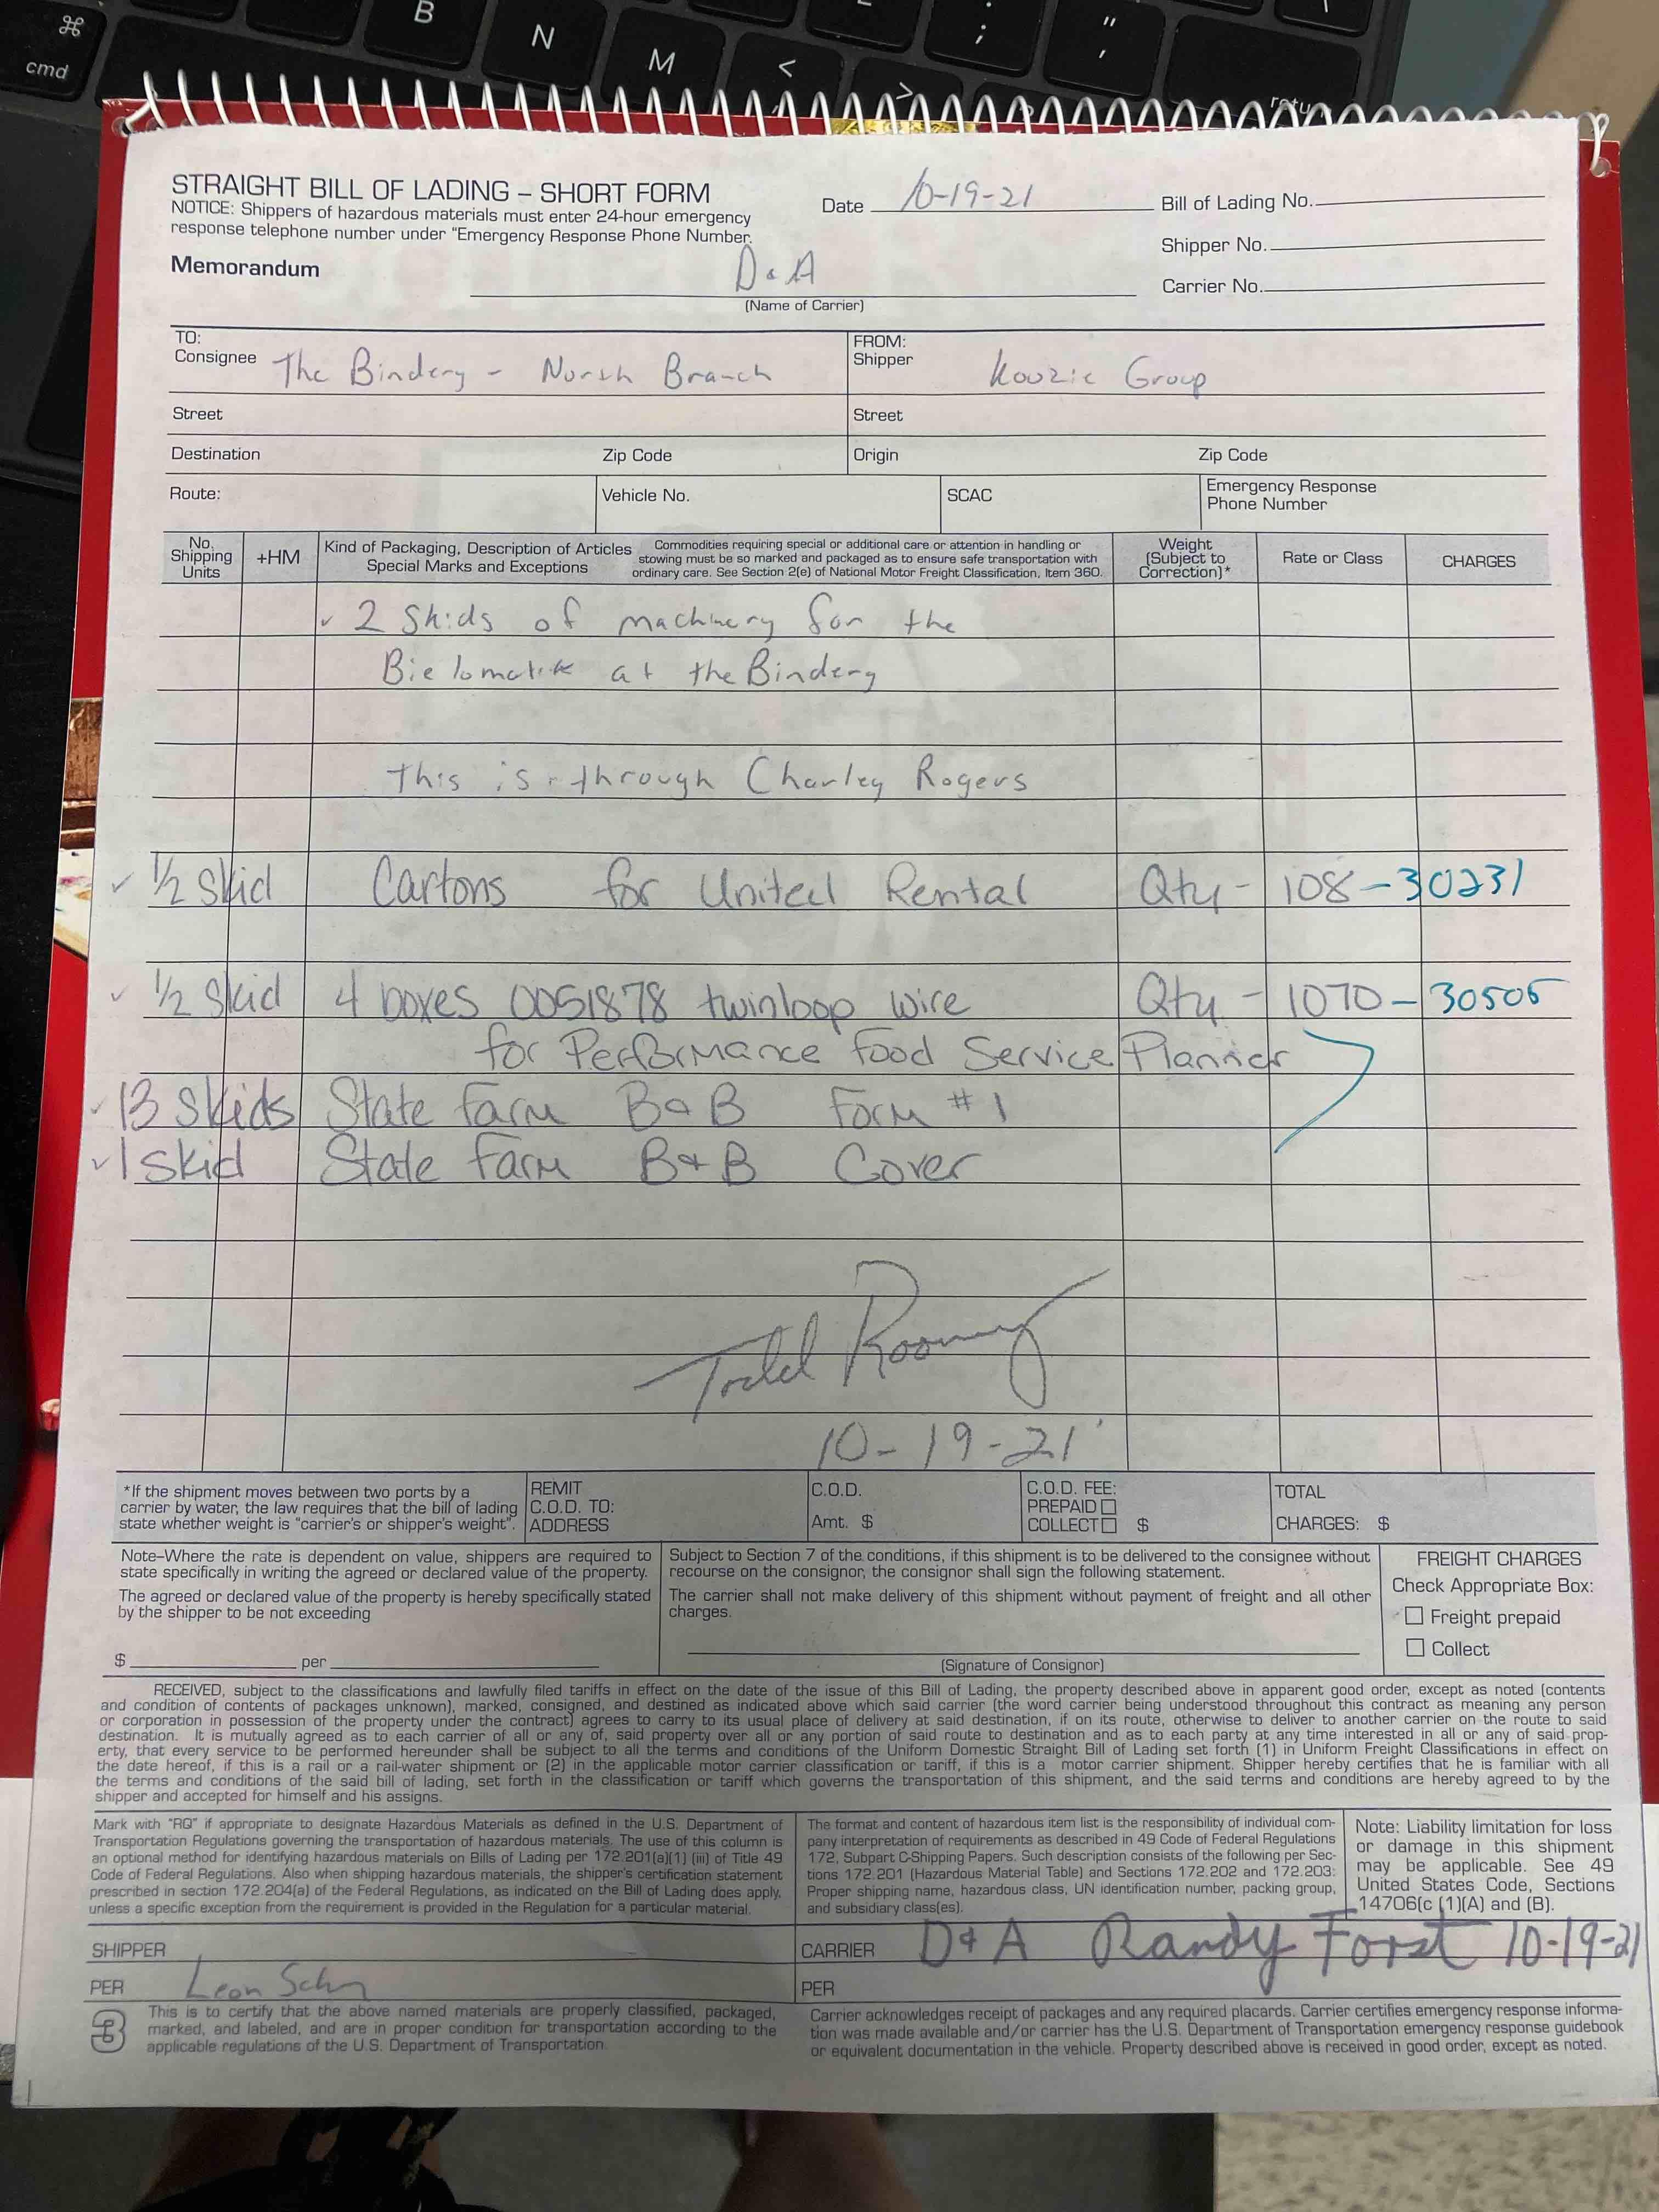 ⌘
cmd
B
N
M
<
>
;
"
,
STRAIGHT BILL OF LADING – SHORT FORM
NOTICE: Shippers of hazardous materials must enter 24-hour emergency
response telephone number under "Emergency Response Phone Number.
Memorandum
Date 10-19-21
Bill of Lading No.
Shipper No.
Carrier No.
D&A
(Name of Carrier)
TO:
Consignee The Bindery - North Branch
FROM:
Shipper Koozie Group
Street
Street
Destination Zip Code
Origin Zip Code
Route:
Vehicle No.
SCAC
Emergency Response
Phone Number
No.
Shipping
Units
+HM
Kind of Packaging, Description of Articles
Special Marks and Exceptions
Commodities requiring special or additional care or attention in handling or
stowing must be so marked and packaged as to ensure safe transportation with
ordinary care. See Section 2(e) of National Motor Freight Classification, Item 360.
Weight
(Subject to
Correction)*
Rate or Class
CHARGES
✓ 2 Skids of machinery for the
Bielomatik at the Bindery
this is through Charley Rogers
✓ 1/2 Skid Cartons for United Rental Qty - 108 - 30231
✓ 1/2 Skid 4 boxes 0051878 twinloop wire Qty - 1070 - 30505
for Performance Food Service Planner
✓ 13 Skids State Farm B&B Form #1
✓ 1 skid State Farm B&B Cover
Todd Rooney
10-19-21
*If the shipment moves between two ports by a
carrier by water, the law requires that the bill of lading
state whether weight is "carrier's or shipper's weight".
REMIT
C.O.D. TO:
ADDRESS
C.O.D.
Amt. $
C.O.D. FEE:
PREPAID
COLLECT $
TOTAL
CHARGES: $
Note–Where the rate is dependent on value, shippers are required to
state specifically in writing the agreed or declared value of the property.
The agreed or declared value of the property is hereby specifically stated
by the shipper to be not exceeding
$ per
Subject to Section 7 of the conditions, if this shipment is to be delivered to the consignee without
recourse on the consignor, the consignor shall sign the following statement.
The carrier shall not make delivery of this shipment without payment of freight and all other
charges.
(Signature of Consignor)
FREIGHT CHARGES
Check Appropriate Box:
Freight prepaid
Collect
RECEIVED, subject to the classifications and lawfully filed tariffs in effect on the date of the issue of this Bill of Lading, the property described above in apparent good order, except as noted (contents
and condition of contents of packages unknown), marked, consigned, and destined as indicated above which said carrier (the word carrier being understood throughout this contract as meaning any person
or corporation in possession of the property under the contract) agrees to carry to its usual place of delivery at said destination, if on its route, otherwise to deliver to another carrier on the route to said
destination. It is mutually agreed as to each carrier of all or any of, said property over all or any portion of said route to destination and as to each party at any time interested in all or any of said prop-
erty, that every service to be performed hereunder shall be subject to all the terms and conditions of the Uniform Domestic Straight Bill of Lading set forth (1) in Uniform Freight Classifications in effect on
the date hereof, if this is a rail or a rail-water shipment or (2) in the applicable motor carrier classification or tariff, if this is a motor carrier shipment. Shipper hereby certifies that he is familiar with all
the terms and conditions of the said bill of lading, set forth in the classification or tariff which governs the transportation of this shipment, and the said terms and conditions are hereby agreed to by the
shipper and accepted for himself and his assigns.
Mark with "RQ" if appropriate to designate Hazardous Materials as defined in the U.S. Department of
Transportation Regulations governing the transportation of hazardous materials. The use of this column is
an optional method for identifying hazardous materials on Bills of Lading per 172.201(a)(1) (iii) of Title 49
Code of Federal Regulations. Also when shipping hazardous materials, the shipper's certification statement
prescribed in section 172.204(a) of the Federal Regulations, as indicated on the Bill of Lading does apply,
unless a specific exception from the requirement is provided in the Regulation for a particular material.
The format and content of hazardous item list is the responsibility of individual com-
pany interpretation of requirements as described in 49 Code of Federal Regulations
172, Subpart C-Shipping Papers. Such description consists of the following per Sec-
tions 172.201 (Hazardous Material Table) and Sections 172.202 and 172.203:
Proper shipping name, hazardous class, UN identification number, packing group,
and subsidiary class(es).
Note: Liability limitation for loss
or damage in this shipment
may be applicable. See 49
United States Code, Sections
14706(c (1)(A) and (B).
SHIPPER
PER Leon
CARRIER D&A Randy Forst 10-19-21
PER
3
This is to certify that the above named materials are properly classified, packaged,
marked, and labeled, and are in proper condition for transportation according to the
applicable regulations of the U.S. Department of Transportation.
Carrier acknowledges receipt of packages and any required placards. Carrier certifies emergency response informa-
tion was made available and/or carrier has the U.S. Department of Transportation emergency response guidebook
or equivalent documentation in the vehicle. Property described above is received in good order, except as noted.